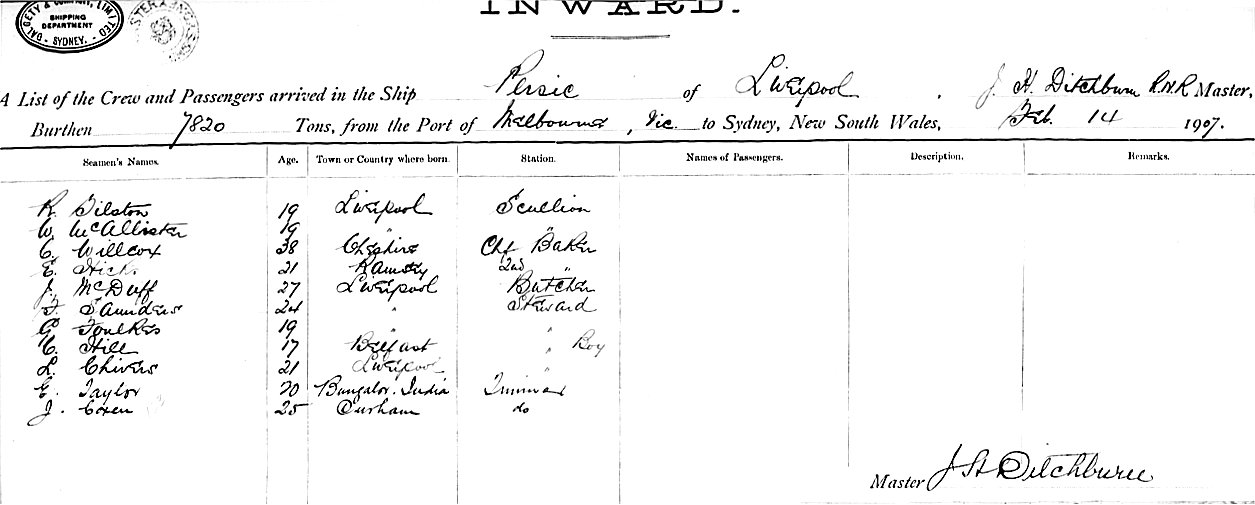 DALGETY & COMPANY, LIMITED
SHIPPING
DEPARTMENT
SYDNEY.
INWARD.
A List of the Crew and Passengers arrived in the Ship Persic of Liverpool, J. H. Ditchburn R.N.R Master,
Burthen 7820 Tons, from the Port of Melbourne, Vic. to Sydney, New South Wales, Feb. 14 1907.
Seamen's Names. Age. Town or Country where born. Station. Names of Passengers. Description. Remarks.
R. Gilston 19 Liverpool Scullion
W. McAllister 19 " "
C. Willcox 38 Cheshire Chf Baker
E. Hick 21 Ramsey 2nd "
J. McDuff 27 Liverpool Butcher
F. Saunders 24 " Steward
G. Foulkes 19 " "
C. Hill 17 Belfast " Boy
L. Chivers 21 Liverpool "
E. Taylor 20 Bangalor. India Trimmer
J. Coxen 25 Durham do
Master J H Ditchburn